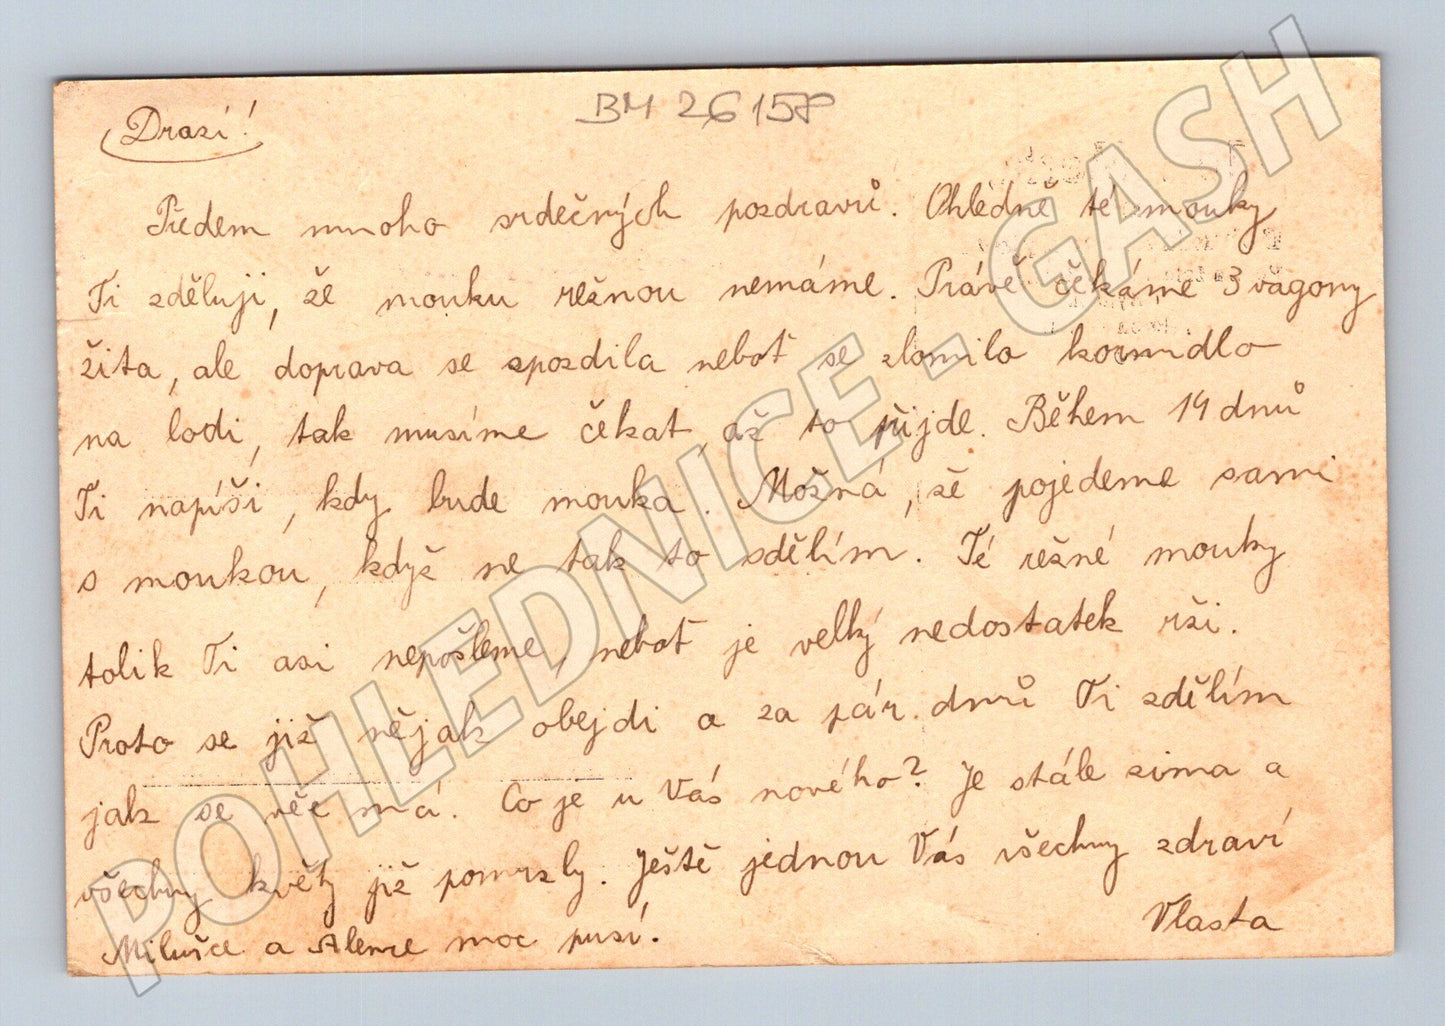 BM 26158
Drazí!
Předem mnoho srdečných pozdravů. Ohledně té mouky
Ti zděluji, že mouku režnou nemáme. Právě čekáme 3 vagony
žita, ale doprava se zpozdila neboť se zlomilo kormidlo
na lodi, tak musíme čekat, až to přijde. Během 14 dnů
Ti napíši, kdy bude mouka. Možná, že pojedeme sami
s moukou, když ne tak to sdělím. Té režné mouky
tolik Ti asi nepošleme, neboť je velký nedostatek rži.
Proto se již nějak obejdi a za pár dnů Ti zdělím
jak se věc má. Co je u Vás nového? Je stále zima a
všechny květy již pomrzly. Ještě jednou Vás všechny zdraví
Vlasta
Milušce a Alence moc pusí.
POHLEDNICE - GASH